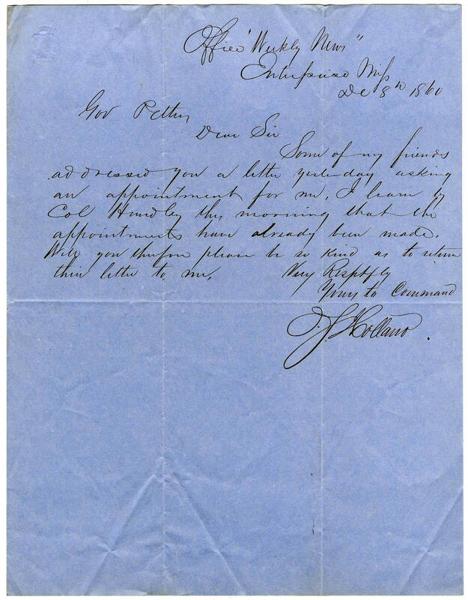 Office "Weekly News"
Enterprise Miss
De 8th 1860
Gov Pettus
Dear Sir
Some of my friends
addressed you a letter yesterday asking
an appointment for me. I learn by
Col this morning that the
appointments have already been made.
Will you therefore please be so kind as to return
their letter to me.
Very Respctfly
Yours to Command
Holland.